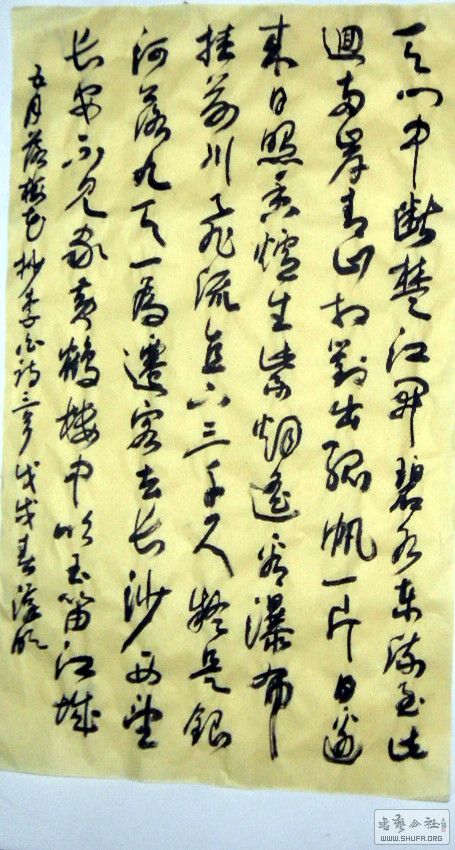 天门中斷楚江開碧水东流至此
迴两岸青山相對出孤帆一片日邊
来日照香爐生紫烟遥看瀑布
挂前川飞流直下三千尺疑是銀
河落九天一為遷客去长沙西望
长安不见家黄鶴楼中吹玉笛江城
五月落梅花 抄李白诗三首 戊戌春
書藝公社
WWW.SHUFA.ORG